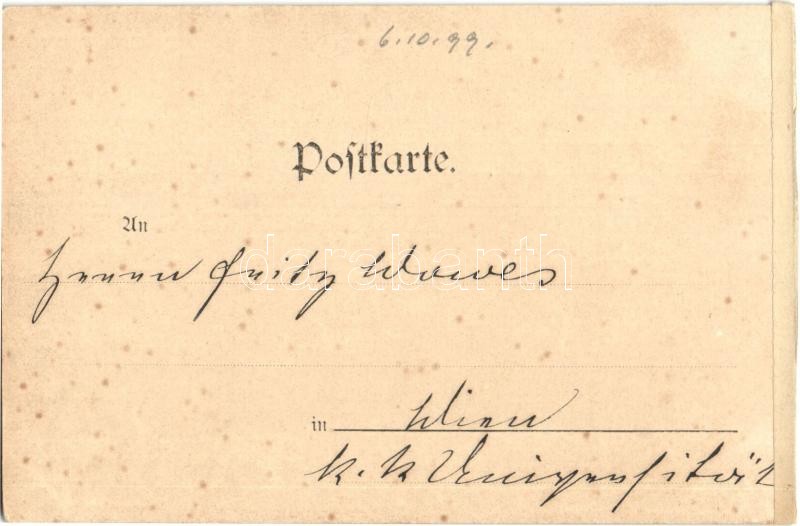 6.10.99.
Postkarte.
An
Herrn Fritz Wowes
in Wien
k. k. Universität
darabanth